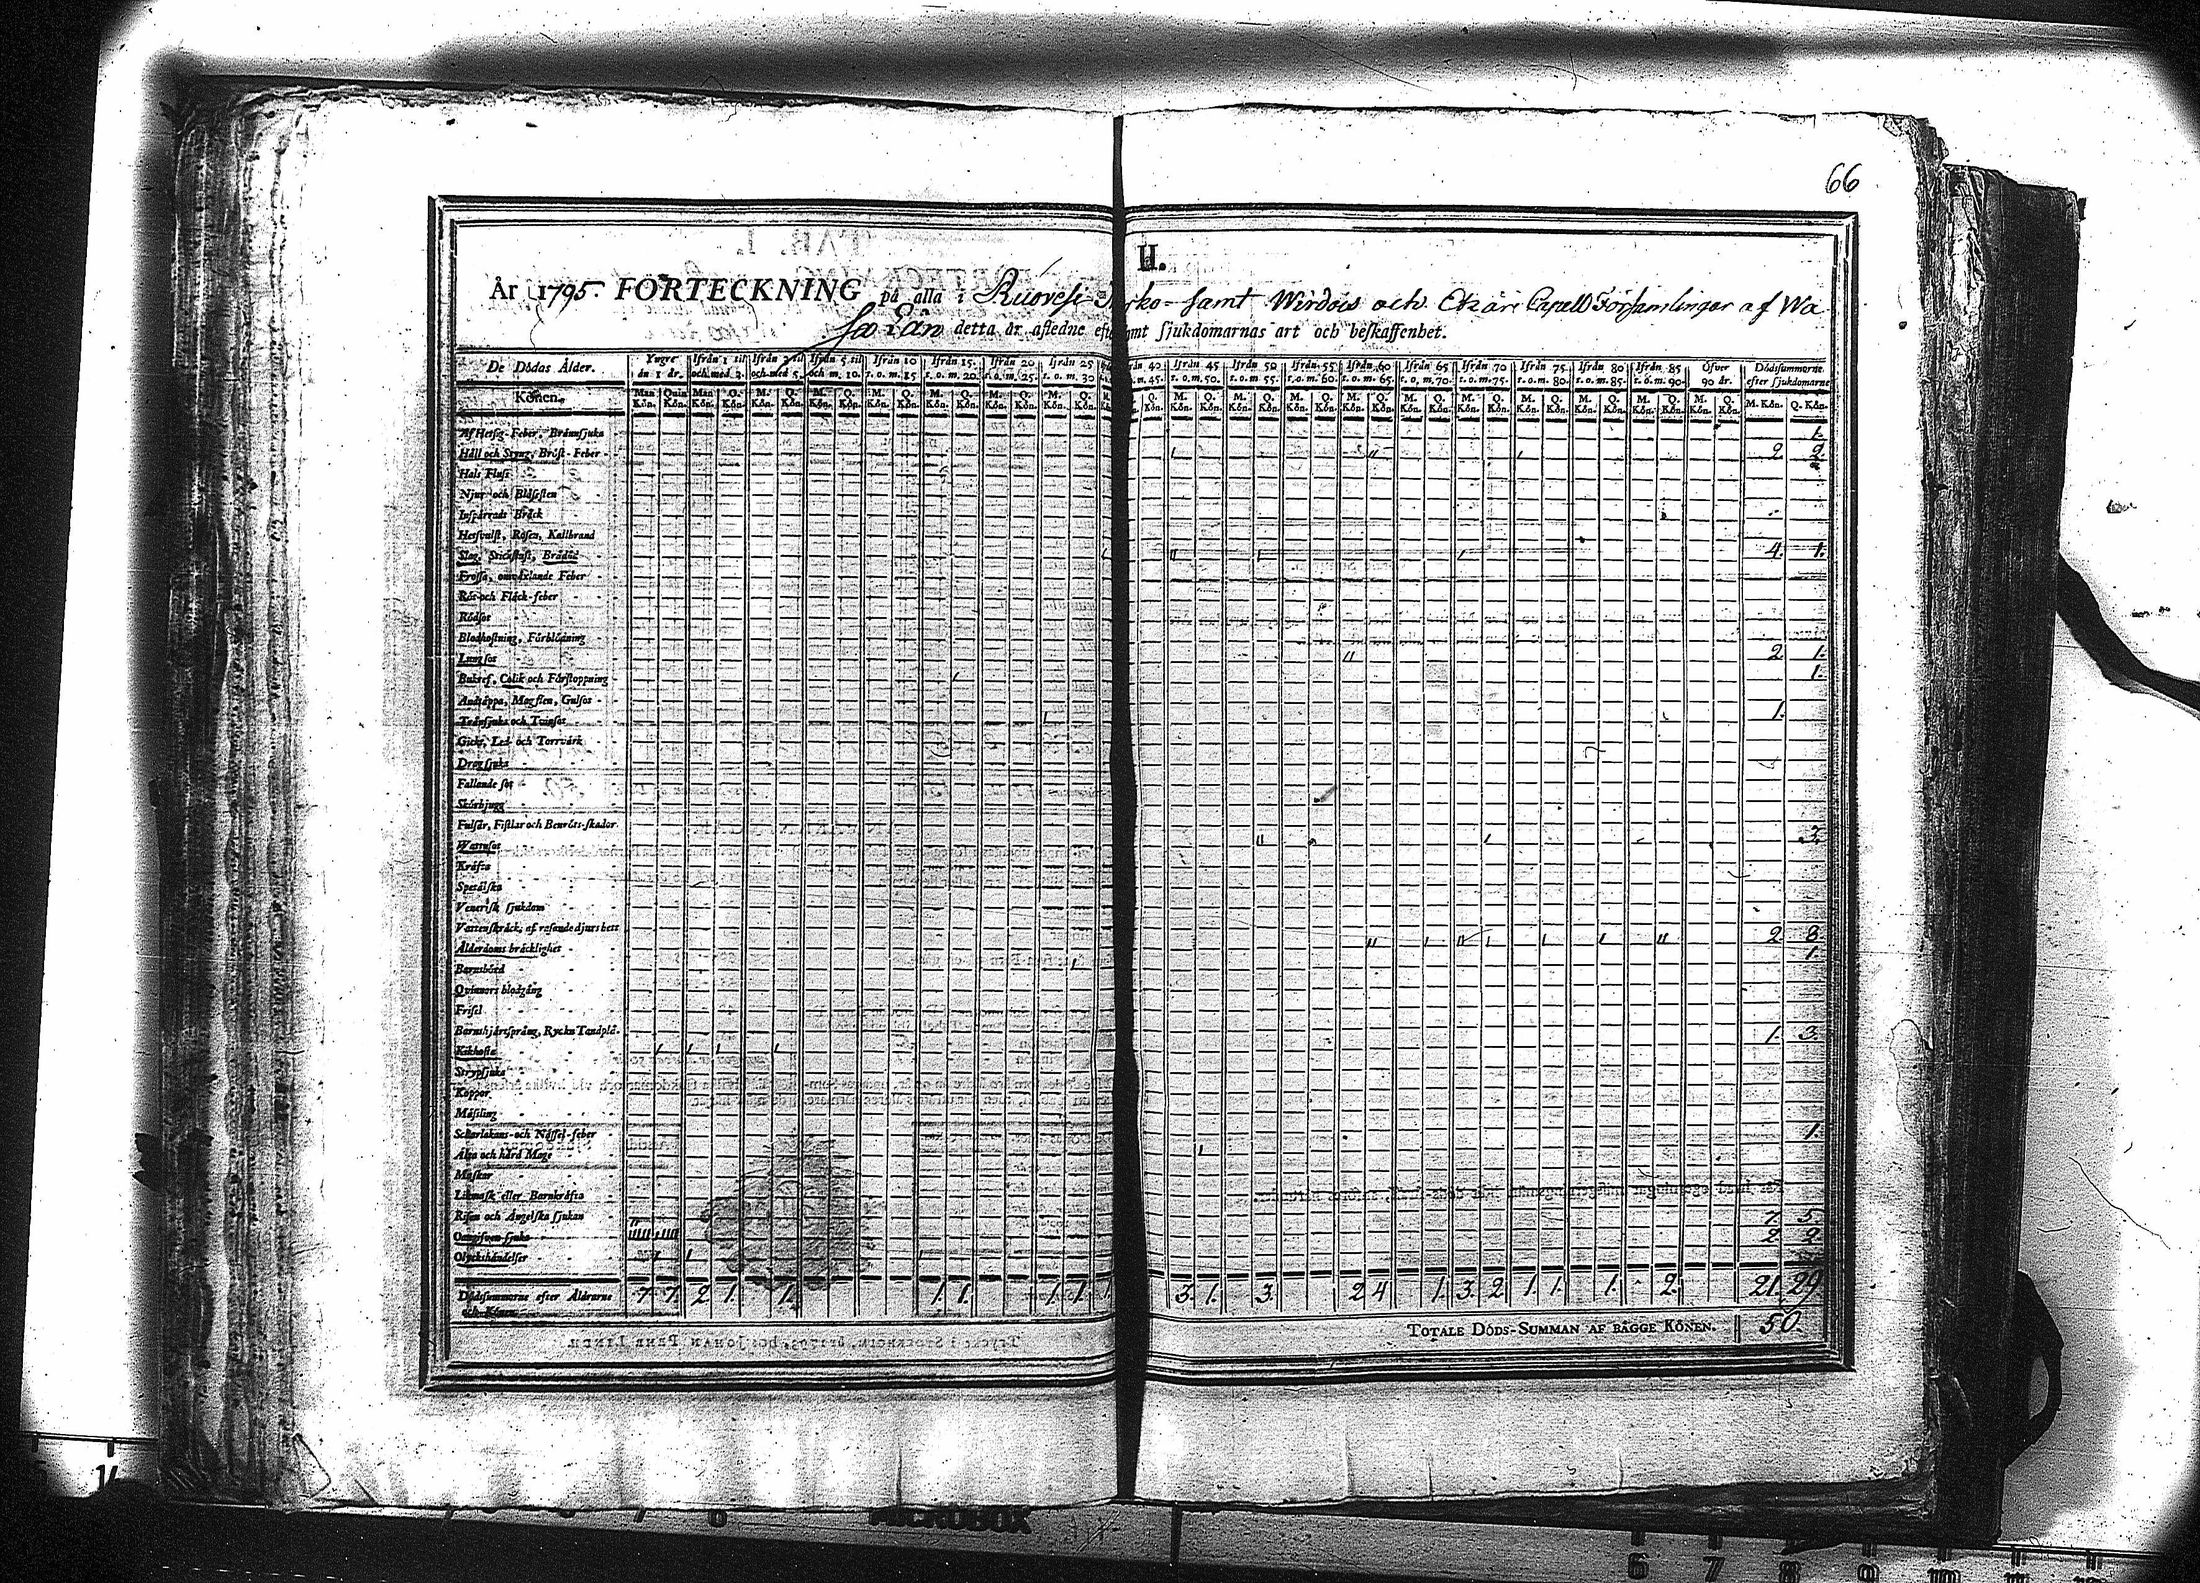 66
II.
År 1795. FÖRTECKNING på alla i Ruovesi Kyrko- samt Wirdois och Etzäri Capell Församlingar af Wa
sa Län detta år afledne efter samt sjukdomarnas art och beskaffenhet.
De Dödas Ålder. Yngre än 1 år. Ifrån 1 til och med 3. Ifrån 3 til och med 5. Ifrån 5 til och m. 10. Ifrån 10 t. o. m. 15. Ifrån 15 t. o. m. 20. Ifrån 20 t. o. m. 25. Ifrån 25 t. o. m. 30 Ifrån 40 t. o. m. 45. Ifrån 45 t. o. m. 50. Ifrån 50 t. o. m. 55. Ifrån 55 t. o. m. 60. Ifrån 60 t. o. m. 65. Ifrån 65 t. o. m. 70. Ifrån 70 t. o. m. 75. Ifrån 75 t. o. m. 80. Ifrån 80 t. o. m. 85. Ifrån 85 t. o. m. 90. Öfver 90 år. Dödssummorne efter sjukdomarne
Könen. Man Kön. Quin Kön. Man Kön. Q. Kön. M. Kön. Q. Kön. M. Kön. Q. Kön. M. Kön. Q. Kön. M. Kön. Q. Kön. M. Kön. Q. Kön. M. Kön. Q. Kön. Q. Kön. M. Kön. Q. Kön. M. Kön. Q. Kön. M. Kön. Q. Kön. M. Kön. Q. Kön. M. Kön. Q. Kön. M. Kön. Q. Kön. M. Kön. Q. Kön. M. Kön. Q. Kön. M. Kön. Q. Kön. M. Kön. Q. Kön. M. Kön. Q. Kön.
Af Hetsig-Feber, Brännsjuka 1.
Håll och Styng, Bröst-Feber 2. 2.
Hals Fluss
Njur och Blåsesten
Inspärrads Bråck
Hetsvulst, Rosen, Kallbrand
Slag, Stickfluss, Brådöd 4. 1.
Frossa, omväxlande Feber
Röt- och Fläck-feber
Rödsot
Blodhostning, Förblödning
Lungsot 2 1.
Bukref, Colik och Förstoppning 1.
Andtäppa, Magsten, Gulsot
Tränsjuka och Tvinsot 1.
Gickt, Led- och Torrvärk
Dragsjuka
Fallande sot
Skörbjugg
Fulsår, Fistlar och Benröts-skador
Wattusot 3.
Kräfta
Spetälska
Venerisk sjukdom
Vattenskräck, af rasande djurs bett
Ålderdoms bräcklighet 2 8
Barnsbörd 1.
Qvinnors blodgång
Frisel
Barnshjärtsprång, Ryck, Tandplå-
Kikhosta 1. 3.
Strypsjuka
Koppor
Mässling
Scharlakans- och Nässel-feber
Älta och hård Mage 1.
Maskar
Likmask eller Barnkräfta
Risen och Ängelska sjukan
Oangifven sjuka 7. 5
Olyckshändelser 2 2
Dödssummorne efter Åldrarne och Könen 7. 7. 2 1. 1. 1. 1. 1. 1. 1. 3. 1. 3. 2 4 1. 3. 2 1. 1. 1. 2. 21. 29
TOTALE DÖDS-SUMMAN AF BÄGGE KÖNEN. 50.
MICROBOX
6 7 8 9 10 11